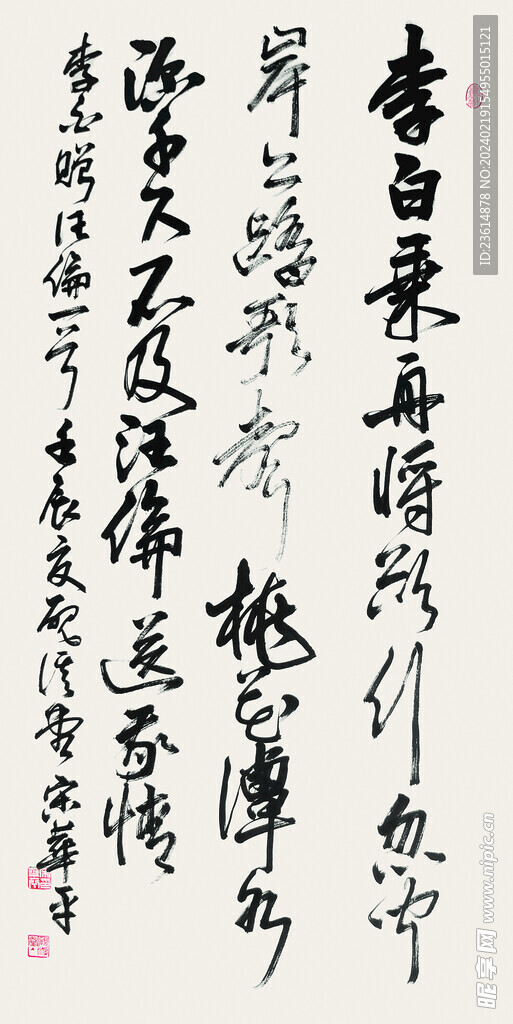 李白乘舟将欲行忽闻
岸上踏歌声桃花潭水
深千尺不及汪倫送我情
李白赠汪倫一首壬辰夏宋華平
ID:23614878 NO:20240219154955015121
昵享网 www.nipic.cn